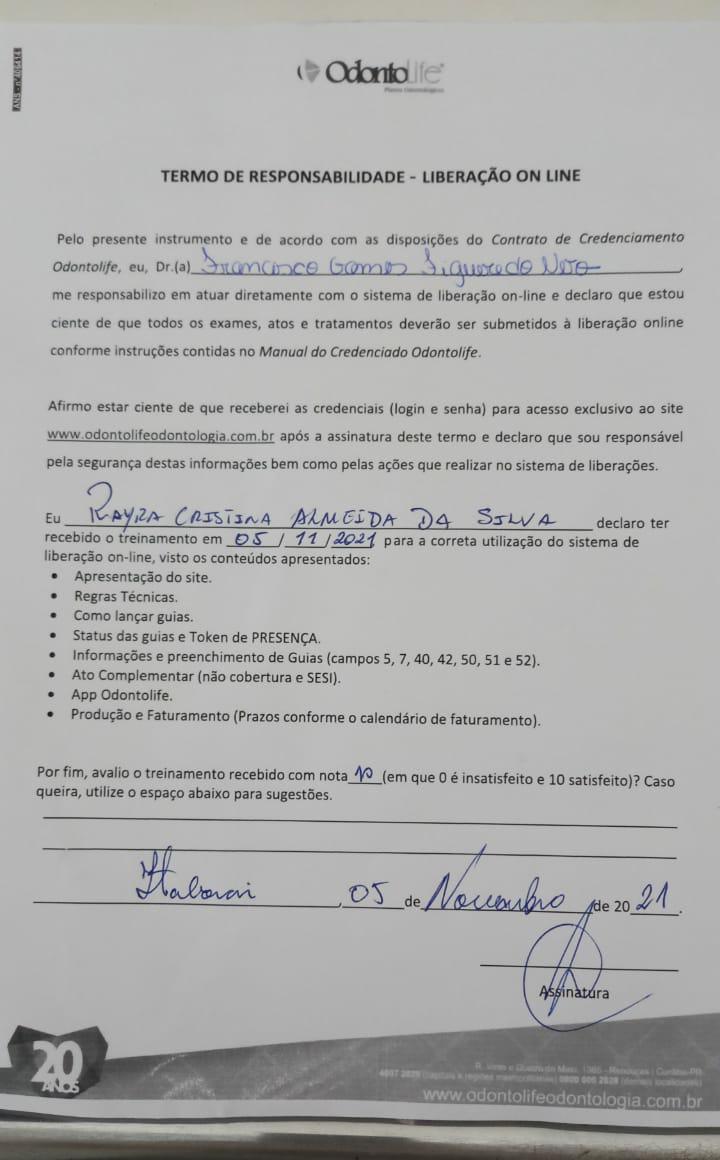 ANS - nº 406414
OdontoLife
Planos Odontológicos
TERMO DE RESPONSABILIDADE - LIBERAÇÃO ON LINE
Pelo presente instrumento e de acordo com as disposições do Contrato de Credenciamento
Odontolife, eu, Dr.(a) Francisco Gomes Figueredo Neto,
me responsabilizo em atuar diretamente com o sistema de liberação on-line e declaro que estou
ciente de que todos os exames, atos e tratamentos deverão ser submetidos à liberação online
conforme instruções contidas no Manual do Credenciado Odontolife.
Afirmo estar ciente de que receberei as credenciais (login e senha) para acesso exclusivo ao site
www.odontolifeodontologia.com.br após a assinatura deste termo e declaro que sou responsável
pela segurança destas informações bem como pelas ações que realizar no sistema de liberações.
Eu RAYRA CRISTINA ALMEIDA DA SILVA declaro ter
recebido o treinamento em 05/11/2021 para a correta utilização do sistema de
liberação on-line, visto os conteúdos apresentados:
• Apresentação do site.
• Regras Técnicas.
• Como lançar guias.
• Status das guias e Token de PRESENÇA.
• Informações e preenchimento de Guias (campos 5, 7, 40, 42, 50, 51 e 52).
• Ato Complementar (não cobertura e SESI).
• App Odontolife.
• Produção e Faturamento (Prazos conforme o calendário de faturamento).
Por fim, avalio o treinamento recebido com nota 10 (em que 0 é insatisfeito e 10 satisfeito)? Caso
queira, utilize o espaço abaixo para sugestões.
Itaboraí, 05 de Novembro de 2021.
Assinatura
20
ANOS
4007 2828 (capitais e regiões metropolitanas) 0800 000 2828 (demais localidades)
www.odontolifeodontologia.com.br